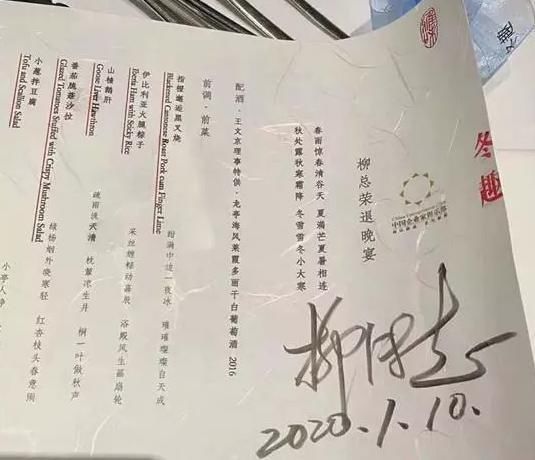 冬趣
中国企业家俱乐部
柳总荣退晚宴
春雨惊春清谷天 夏满芒夏暑相连
秋处露秋寒霜降 冬雪雪冬小大寒
配酒·王文京理事特供·龙亭海风莱霞多丽干白葡萄酒 2016
前调·前菜
指橙邂逅黑叉烧
Blackened Cantonese Roast Pork cum Finger Lime
甜满中边一夜冰 自天成
伊比利亚火腿粽子
Iberia Ham with Sticky Rice
采丝缠粽动嘉辰 浴殿风生 扇轮
山楂鹅肝
Goose Liver Hawthorn
疏雨洗天清 枕簟凉生井 桐一叶做秋声
番茄脆菇沙拉
Glazed Tomatoes Stuffed with Crispy Mushroom Salad
绿杨烟外晓寒轻 红杏枝头春意闹
小葱拌豆腐
Tofu and Scallion Salad
小亭人静
柳传志
2020.1.10.